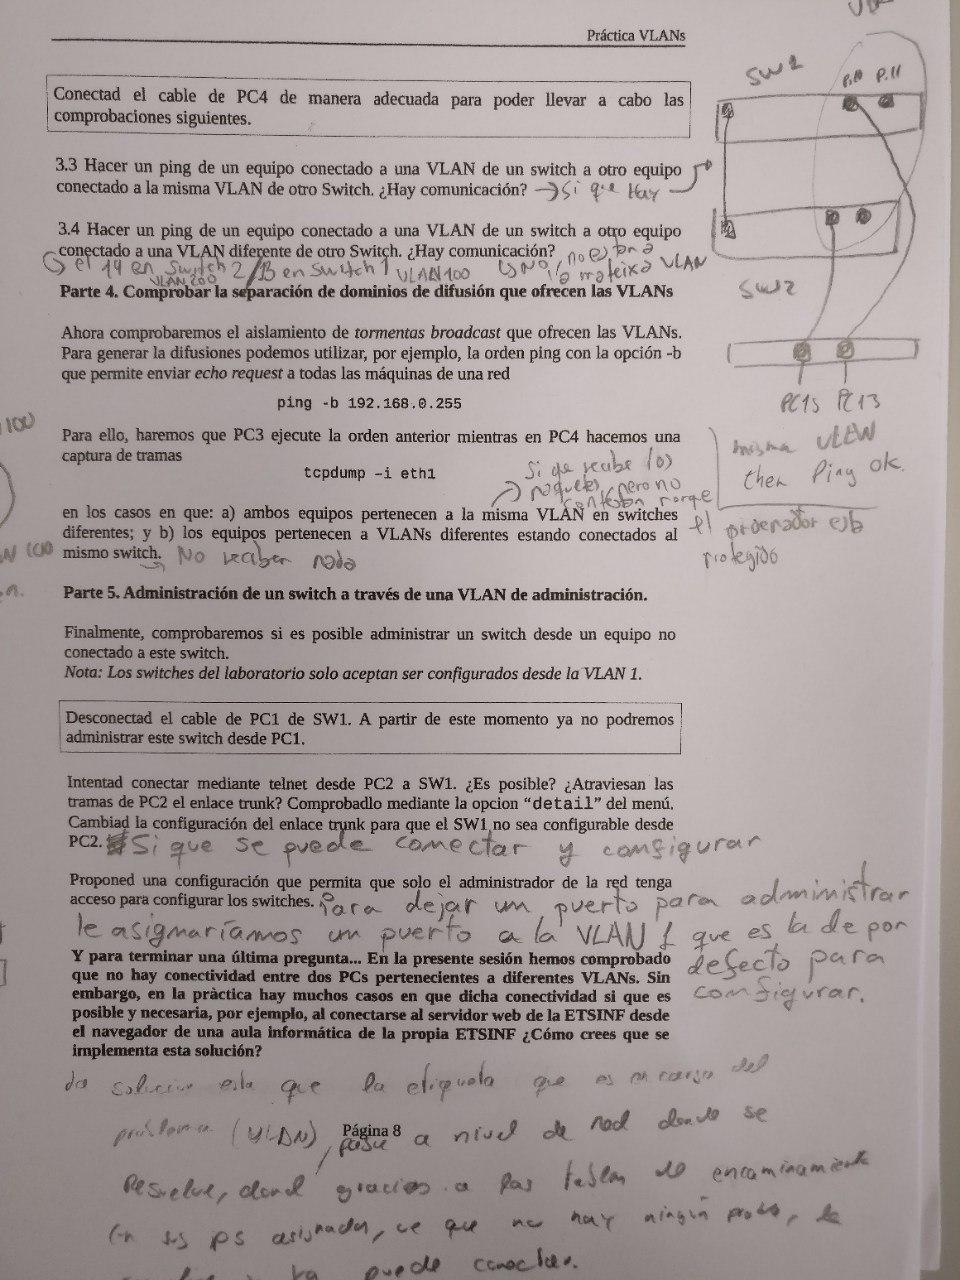 Práctica VLANs
Conectad el cable de PC4 de manera adecuada para poder llevar a cabo las
comprobaciones siguientes.
SW1
P.10 P.11
3.3 Hacer un ping de un equipo conectado a una VLAN de un switch a otro equipo
conectado a la misma VLAN de otro Switch. ¿Hay comunicación? → Si que Hay
3.4 Hacer un ping de un equipo conectado a una VLAN de un switch a otro equipo
conectado a una VLAN diferente de otro Switch. ¿Hay comunicación?
↳ No, no es en a la mateixa VLAN
el 14 en Switch 2 / 13 en Switch 1
VLAN 200 VLAN 100
SW2
Parte 4. Comprobar la separación de dominios de difusión que ofrecen las VLANs
Ahora comprobaremos el aislamiento de tormentas broadcast que ofrecen las VLANs.
Para generar la difusiones podemos utilizar, por ejemplo, la orden ping con la opción -b
que permite enviar echo request a todas las máquinas de una red
ping -b 192.168.0.255
PC15 PC13
Para ello, haremos que PC3 ejecute la orden anterior mientras en PC4 hacemos una
captura de tramas
tcpdump -i eth1
misma
then Ping ok.
Si que recibe los
paquetes, pero no
contestan porque
el ordenador está
protegido
en los casos en que: a) ambos equipos pertenecen a la misma VLAN en switches
diferentes; y b) los equipos pertenecen a VLANs diferentes estando conectados al
mismo switch. → No reciben nada
100
100
Parte 5. Administración de un switch a través de una VLAN de administración.
Finalmente, comprobaremos si es posible administrar un switch desde un equipo no
conectado a este switch.
Nota: Los switches del laboratorio solo aceptan ser configurados desde la VLAN 1.
Desconectad el cable de PC1 de SW1. A partir de este momento ya no podremos
administrar este switch desde PC1.
Intentad conectar mediante telnet desde PC2 a SW1. ¿Es posible? ¿Atraviesan las
tramas de PC2 el enlace trunk? Comprobadlo mediante la opcion "detail" del menú.
Cambiad la configuración del enlace trunk para que el SW1 no sea configurable desde
PC2. Si que se puede conectar y configurar
Proponed una configuración que permita que solo el administrador de la red tenga
acceso para configurar los switches. Para dejar un puerto para administrar
le asignaríamos un puerto a la VLAN 1 que es la de por
defecto para
configurar.
Y para terminar una última pregunta... En la presente sesión hemos comprobado
que no hay conectividad entre dos PCs pertenecientes a diferentes VLANs. Sin
embargo, en la pràctica hay muchos casos en que dicha conectividad si que es
posible y necesaria, por ejemplo, al conectarse al servidor web de la ETSINF desde
el navegador de una aula informática de la propia ETSINF ¿Cómo crees que se
implementa esta solución?
la solucion esta que la etiqueta que es del
problema (VLAN), pase a nivel de red donde se
Página 8
resuelve, gracias a las tablas de encaminamiento
asignadas, ya que no hay ningún
puede conectar.